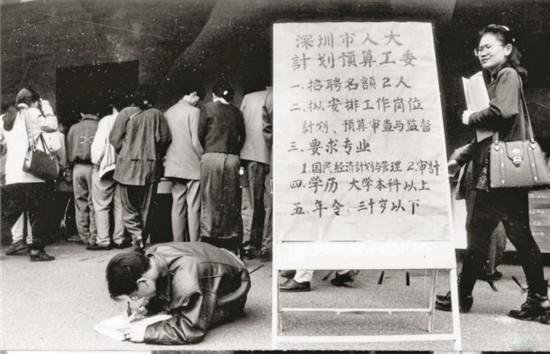 深圳市人大
計划预算工委
一、招聘名额2人
二、拟安排工作岗位
計划、预算审查与监督
三、要求专业
1.国民经济计划与管理 2.审计
四、学历 大学本科以上
五、年令、三十岁以下